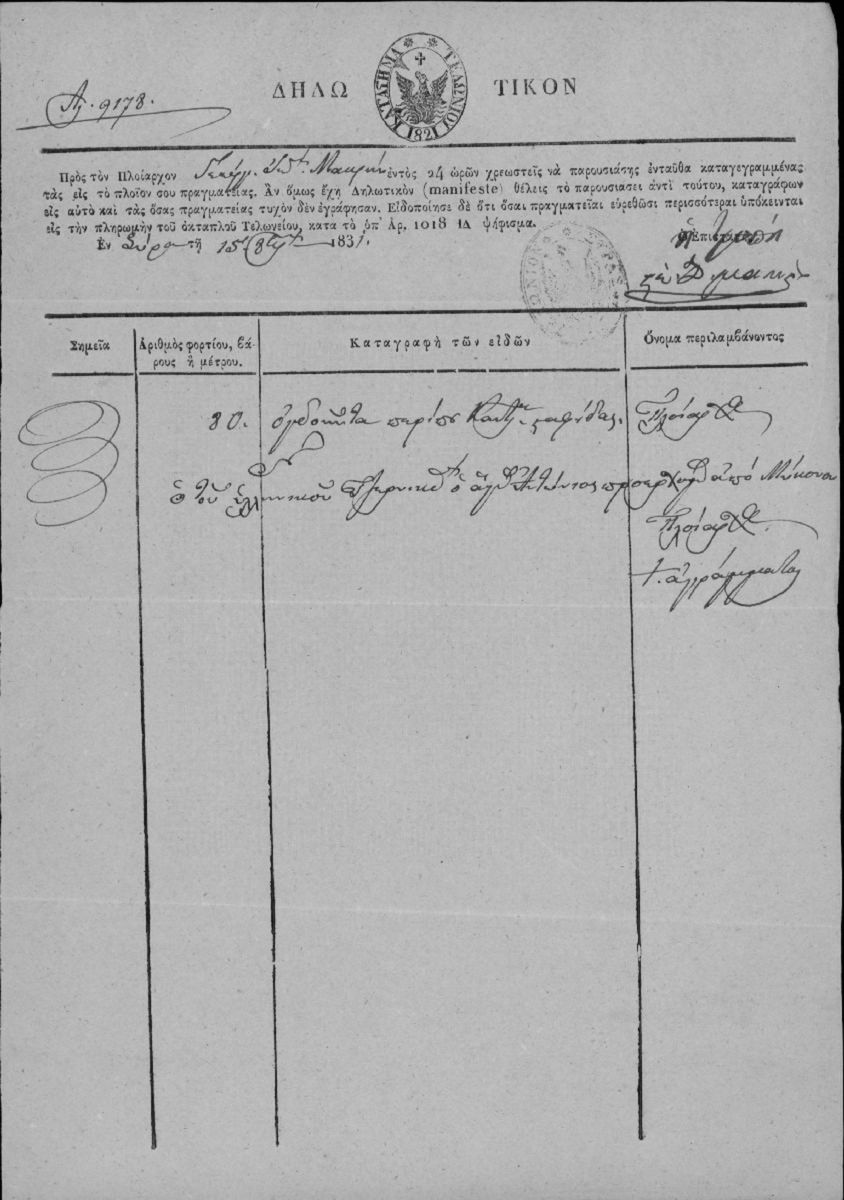 ΔΗΛΩ ΤΙΚΟΝ
ΚΑΤΑΣΤΗΜΑ ΤΕΛΩΝΙΟΥ 1821
Αρ. 9178.
Πρὸς τὸν Πλοίαρχον Γεώργ. Μακρήν ἐντὸς 24 ὡρῶν χρεωστεῖς νὰ παρουσιάσῃς ἐνταῦθα καταγεγραμμένας
τὰς εἰς τὸ πλοῖον σου πραγματείας. Ἂν ὅμως ἔχῃ Δηλωτικὸν (manifeste) θέλεις τὸ παρουσιασει ἀντὶ τούτου, καταγράφων
εἰς αὐτὸ καὶ τὰς ὅσας πραγματείας τυχὸν δὲν ἐγράφησαν. Εἰδοποίησε δὲ ὅτι ὅσαι πραγματεῖαι εὑρεθῶσι περισσότεραι ὑπόκεινται
εἰς τὴν πληρωμὴν τοῦ ὀκταπλοῦ Τελωνείου, κατα τὸ ὑπ᾽ Ἀρ. 1018 ΙΔ ψήφισμα.
Ἐν Σύρα τῇ 15 1831.
Σημεῖα
Ἀριθμὸς φορτίου, βά-
ρους ἢ μέτρου.
Καταγραφὴ τῶν εἰδῶν
Ὄνομα περιλαμβάνοντος
80. ὀγδοῆντα περίπου σταφίδας. Πλοίαρχος
τοῦ ἑλληνικοῦ ὁ ἅγιος Ἀντώνιος ἀπὸ Μύκονον
Πλοίαρχος
ἀγράμματος